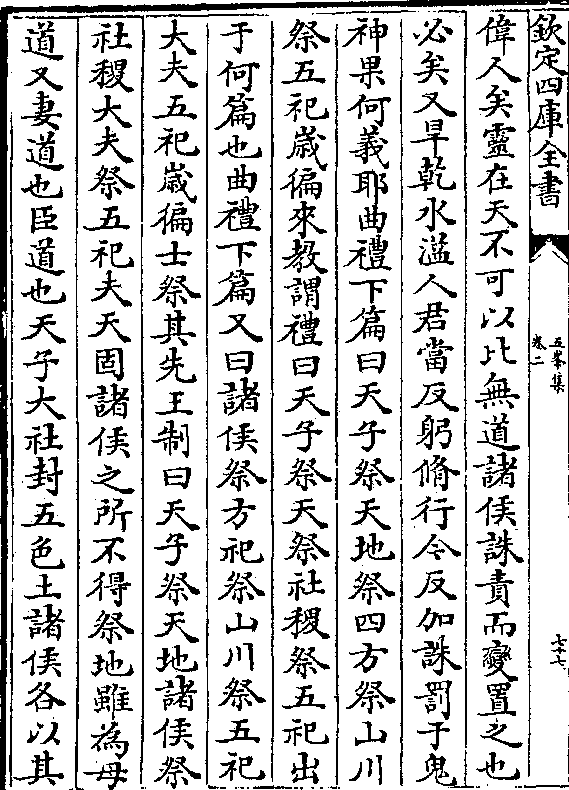 欽定四庫全書
五峯集
卷二
七十七
偉人矣靈在天不可以比無道諸侯誅責而變置之也
必矣又旱乾水溢人君當反躬脩行今反加誅罰于鬼
神果何義耶曲禮下篇曰天子祭天地祭四方祭山川
祭五祀嵗徧來教謂禮曰天子祭天祭社稷祭五祀出
于何篇也曲禮下篇又曰諸侯祭方祀祭山川祭五祀
大夫五祀嵗徧士祭其先王制曰天子祭天地諸侯祭
社稷大夫祭五祀夫天固諸侯之所不得祭地雖為母
道又妻道也臣道也天子大社封五色土諸侯各以其